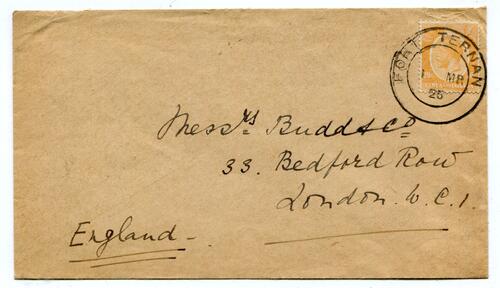 FORT TERNAN
MR
25
Messrs Budds & Co
33. Bedford Row
London. W.C.1.
England